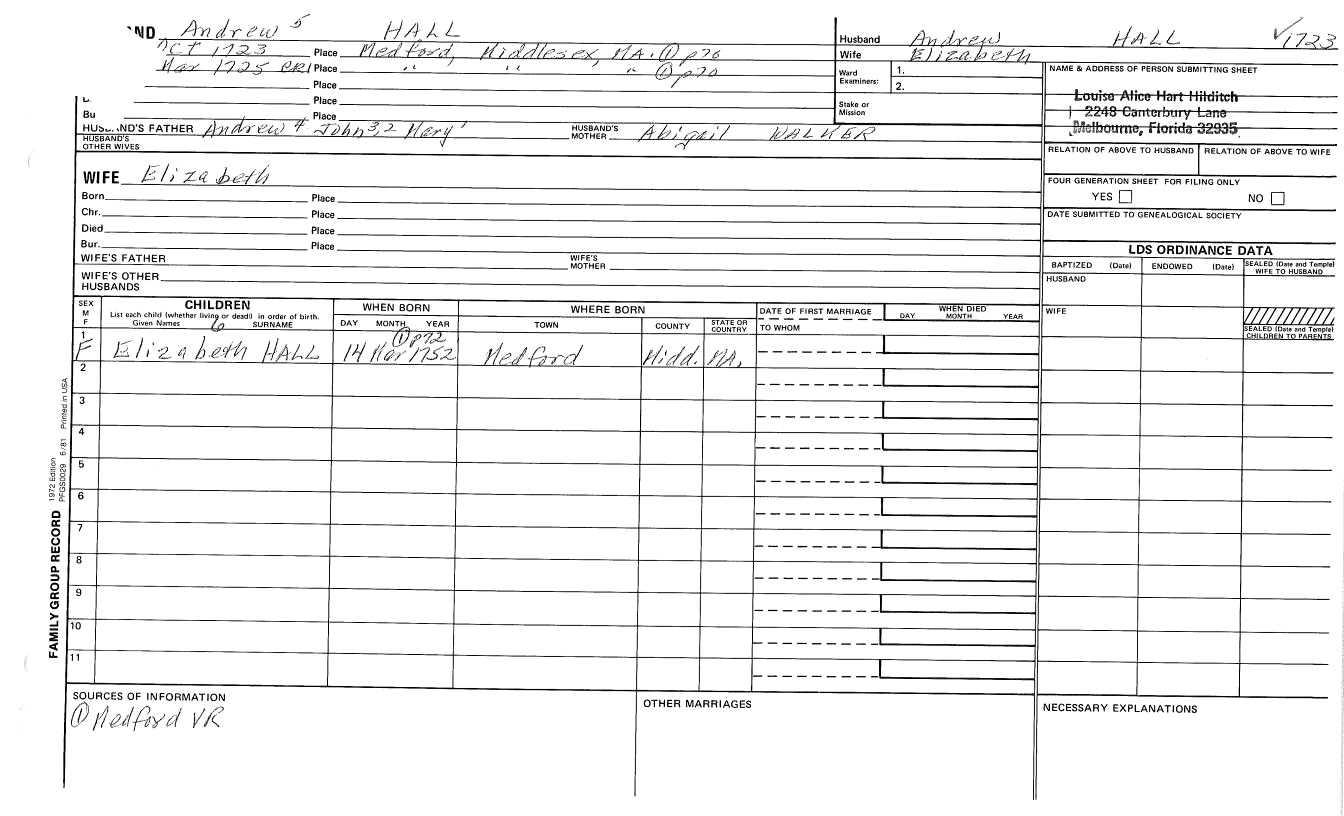 ND Andrew 5 HALL
Oct 1723 Place Medford, Middlesex, MA. ① p70
Mar 1725 CR1 Place " " " ① p70
Place
Place
Bu Place
HUSBAND'S FATHER Andrew 4 John 3,2 Mary 1 HUSBAND'S MOTHER Abigail WALKER
HUSBAND'S OTHER WIVES
Husband Andrew HALL ✓1723
Wife Elizabeth
Ward Examiners: 1.
2.
Stake or Mission
NAME & ADDRESS OF PERSON SUBMITTING SHEET
Louise Alice Hart Hilditch
2248 Canterbury Lane
Melbourne, Florida 32935
RELATION OF ABOVE TO HUSBAND RELATION OF ABOVE TO WIFE
FOUR GENERATION SHEET FOR FILING ONLY
YES NO
DATE SUBMITTED TO GENEALOGICAL SOCIETY
WIFE Elizabeth
Born Place
Chr. Place
Died Place
Bur. Place
WIFE'S FATHER WIFE'S MOTHER
WIFE'S OTHER HUSBANDS
LDS ORDINANCE DATA
BAPTIZED (Date) ENDOWED (Date) SEALED (Date and Temple) WIFE TO HUSBAND
HUSBAND
WIFE
SEALED (Date and Temple) CHILDREN TO PARENTS
SEX M F
CHILDREN
List each child (whether living or dead) in order of birth.
Given Names 6 SURNAME
WHEN BORN
DAY MONTH YEAR
WHERE BORN
TOWN COUNTY STATE OR COUNTRY
DATE OF FIRST MARRIAGE
TO WHOM
WHEN DIED
DAY MONTH YEAR
① p72
1 F Elizabeth HALL 14 Mar 1752 Medford Midd. MA.
2
3
4
5
6
7
8
9
10
11
FAMILY GROUP RECORD 1972 Edition PFGS0029 6/81 Printed in USA
SOURCES OF INFORMATION
① Medford VR
OTHER MARRIAGES
NECESSARY EXPLANATIONS